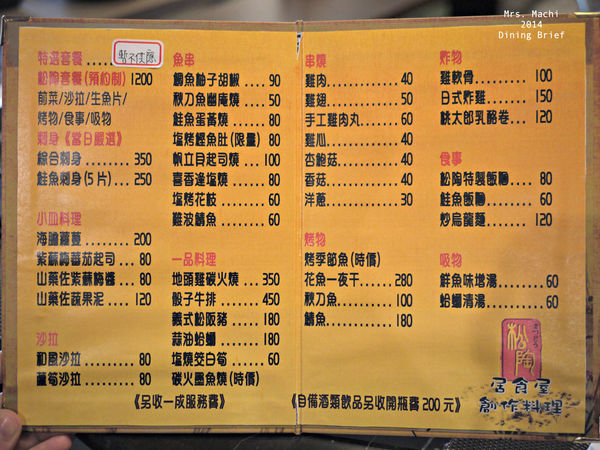 Mrs. Machi
2014
Dining Brief
特選套餐......
松陶套餐(預約制) 1200
前菜/沙拉/生魚片/
烤物/食事/吸物
刺身《當日嚴選》
綜合刺身.........350
鮭魚刺身(5片)...250
小皿料理
海膽蘿蔓........200
紫蘇梅蕃茄起司...80
山藥佐紫蘇梅醬...80
山藥佐蔬果泥....120
沙拉
和風沙拉.........80
蘆筍沙拉.........80
魚串
鯛魚柚子胡椒....90
秋刀魚幽庵燒....50
鮭魚蛋黃燒......80
塩烤鰹魚肚(限量) 80
帆立貝起司燒...100
喜香逢塩燒......80
塩烤花枝........60
難波鯖魚........60
一品料理
地頭雞碳火燒...350
骰子牛排.......450
義式松阪豬.....180
蒜油蛤蠣.......180
塩燒茭白筍......60
碳火圓魚燒(時價)
串燒
雞肉............40
雞翅............50
手工雞肉丸......60
雞心............40
杏鮑菇..........40
香菇............40
洋蔥............30
烤物
烤季節魚(時價)
花魚一夜干......280
秋刀魚..........100
鯖魚............180
炸物
雞軟骨..........100
日式炸雞........150
桃太郎乳酪卷...120
食事
松陶特製飯糰....80
鮭魚飯糰........60
炒烏龍麵.......120
吸物
鮮魚味增湯.......60
蛤蠣清湯.........60
松陶
居食屋
創作料理
《另收一成服務費》
《自備酒類飲品另收開瓶費200元》